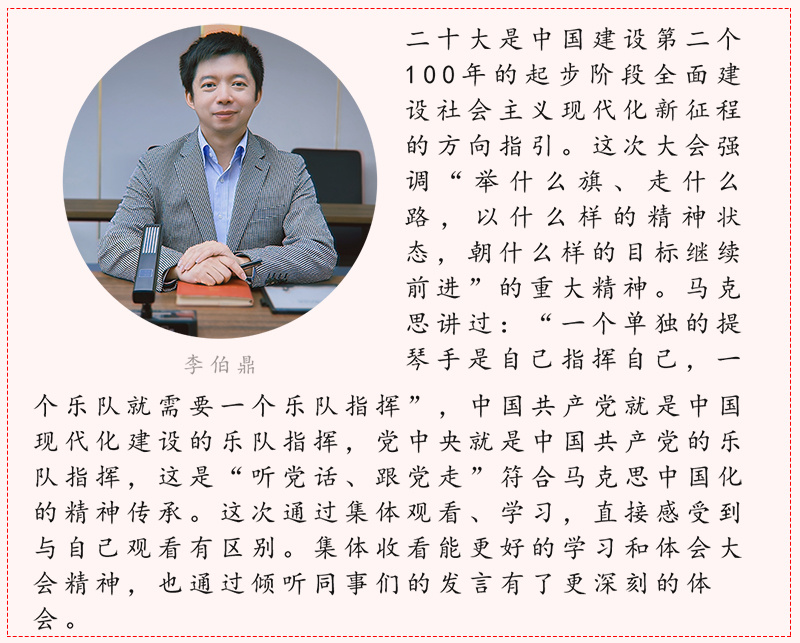 二十大是中国建设第二个
100年的起步阶段全面建
设社会主义现代化新征程
的方向指引。这次大会强
调“举什么旗、走什么
路，以什么样的精神状
态，朝什么样的目标继续
前进”的重大精神。马克
思讲过：“一个单独的提
琴手是自己指挥自己，一
李伯鼎
个乐队就需要一个乐队指挥”，中国共产党就是中国
现代化建设的乐队指挥，党中央就是中国共产党的乐
队指挥，这是“听党话、跟党走”符合马克思中国化
的精神传承。这次通过集体观看、学习，直接感受到
与自己观看有区别。集体收看能更好的学习和体会大
会精神，也通过倾听同事们的发言有了更深刻的体
会。